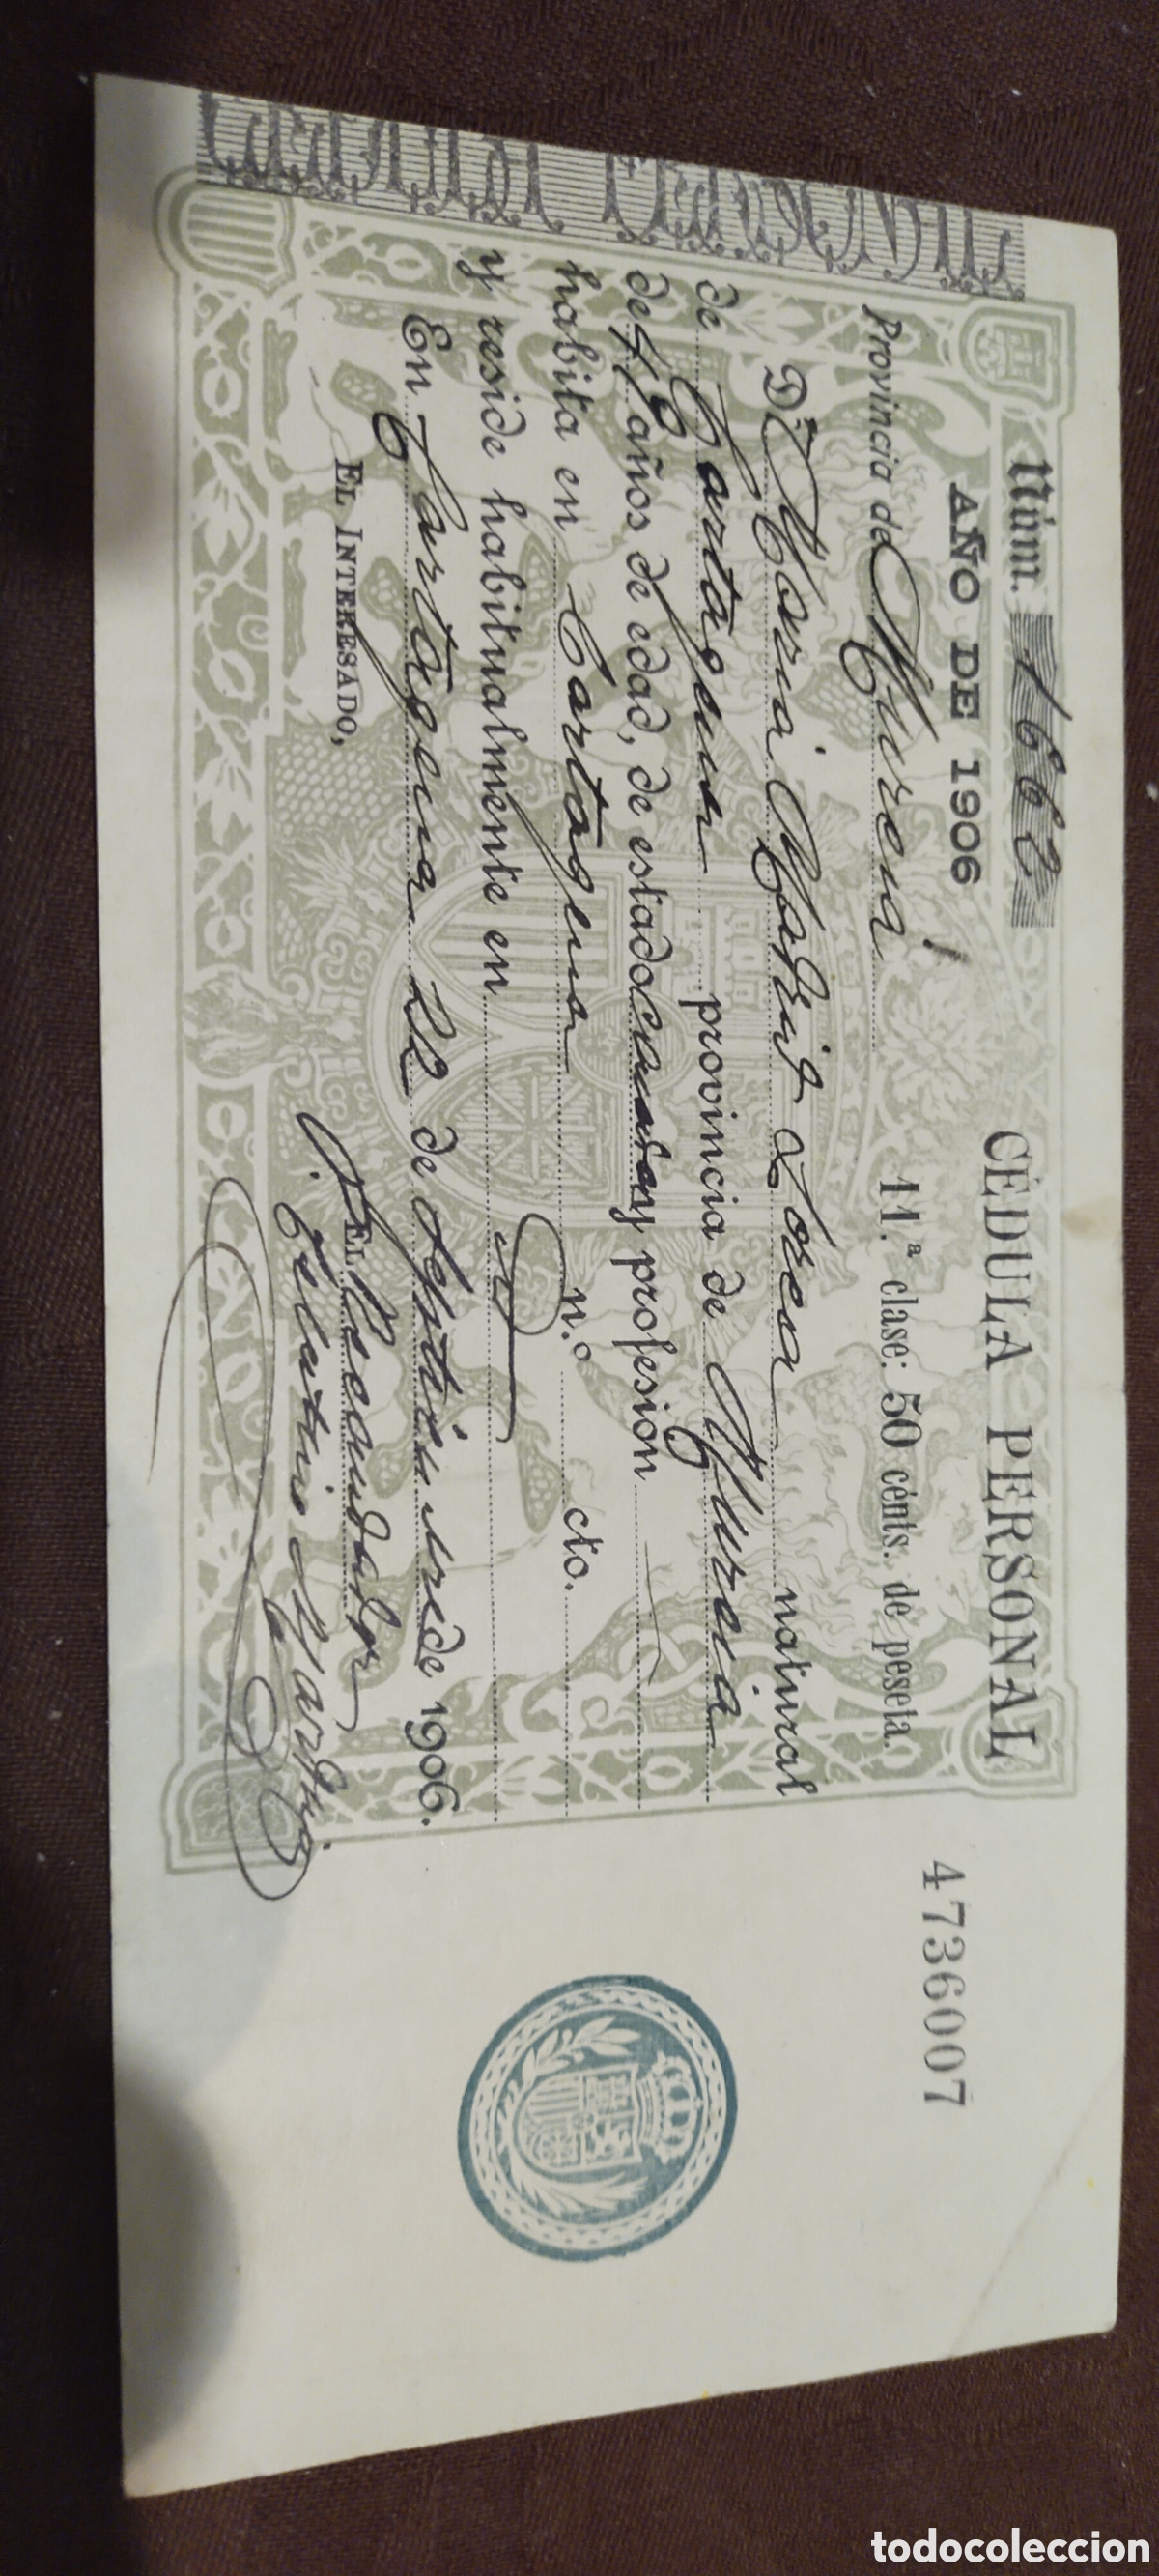 Núm. 1662 CÉDULA PERSONAL
AÑO DE 1906
4736007
Provincia de Murcia 11.ª clase: 50 cénts. de peseta
D.ª Maria Lorca natural
de Cartagena provincia de Murcia
de años de edad, de estado profesión
habita en Cartagena n.º cto.
y reside habitualmente en
En Cartagena 22 de Septiembre de 1906.
EL INTERESADO, EL Recaudador
todocoleccion